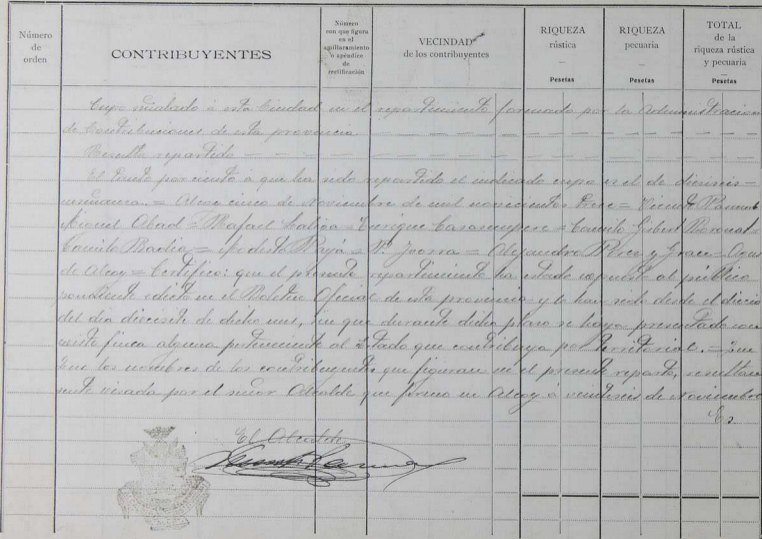 Número
de
orden
CONTRIBUYENTES
Número
con que figura
en el
apillaramiento
o apéndice
de
rectificación
VECINDAD
de los contribuyentes
RIQUEZA
rústica
Pesetas
RIQUEZA
pecuaria
Pesetas
TOTAL
de la
riqueza rústica
y pecuaria
Pesetas
Cupo señalado á esta Ciudad en el repartimiento formado por la Administracion
de Contribuciones de esta provincia
Resulta repartido
El tanto por ciento á que ha sido repartido el indicado cupo es el de dieciseis
Alcoy cinco de Noviembre de mil novecientos Trece = Vicente
Miguel Abad = Rafael = Enrique = Camilo Gisbert =
Camilo Badía = Modesto Payá = = Alejandro Pérez y
de Alcoy = Certifico: que el presente repartimiento ha estado expuesto al público
pondiente edicto en el Boletin Oficial de esta provincia y lo han sido desde el
del dia diecisiete de dicho mes, sin que durante dicho plazo se haya presentado
existe finca alguna perteneciente al Estado que contribuya por Territorial. =
los nombres de los contribuyentes que figuran en el presente reparto, resultan
visada por el señor Alcalde que firmo en Alcoy á veintiseis de Noviembre
El Alcalde